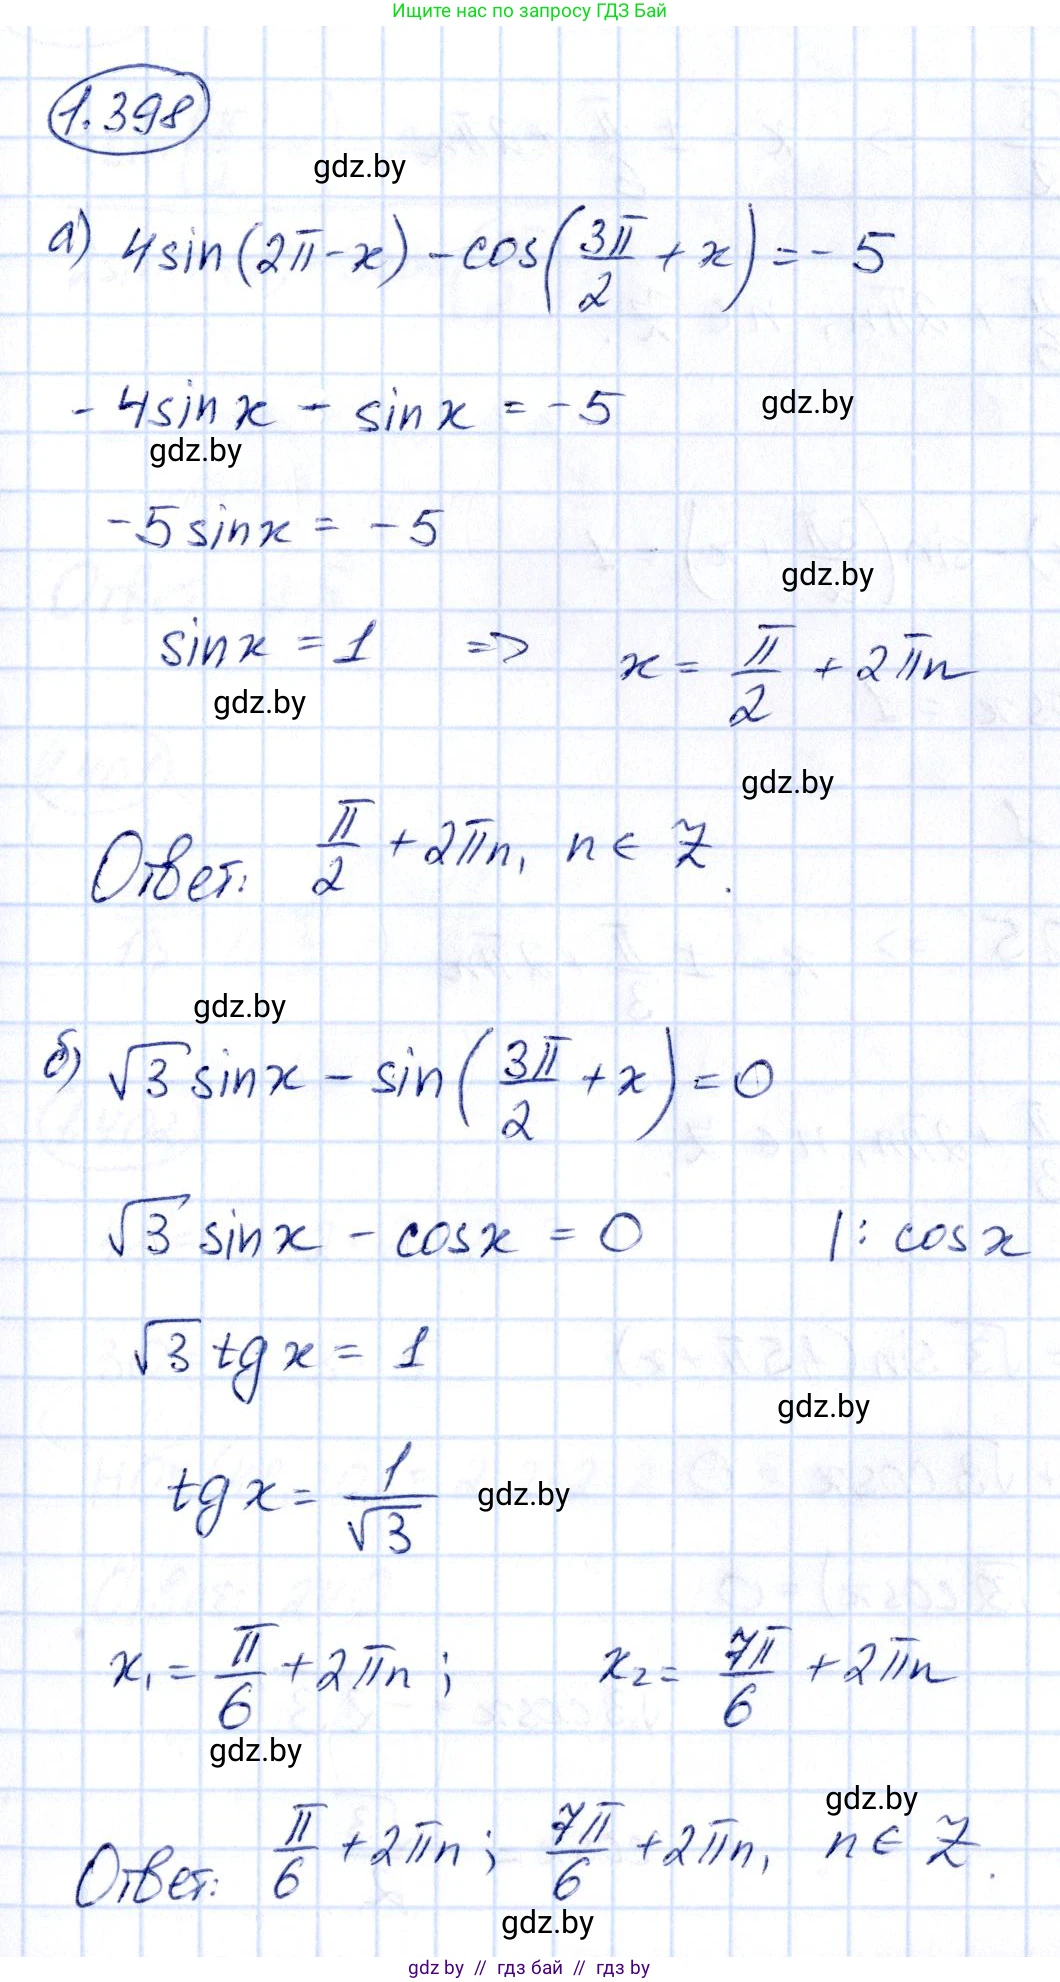 Ищите нас по запросу ГДЗ Бай
1.398
gdz.by
а) 4sin(2π-x) - cos(3π/2 + x) = - 5
- 4sinx - sinx = -5 gdz.by
gdz.by
-5sinx = -5
gdz.by
sinx = 1 => x = π/2 + 2πn
gdz.by
gdz.by
Ответ: π/2 + 2πn, n ∈ Z.
gdz.by
б) √3 sinx - sin(3π/2 + x) = 0
√3 sinx - cosx = 0 |: cosx
√3 tgx = 1
gdz.by
tgx = 1/√3 gdz.by
x₁ = π/6 + 2πn ; x₂ = 7π/6 + 2πn
gdz.by
gdz.by
Ответ: π/6 + 2πn ; 7π/6 + 2πn, n ∈ Z.
gdz.by
gdz.by // гдз бай // гдз by